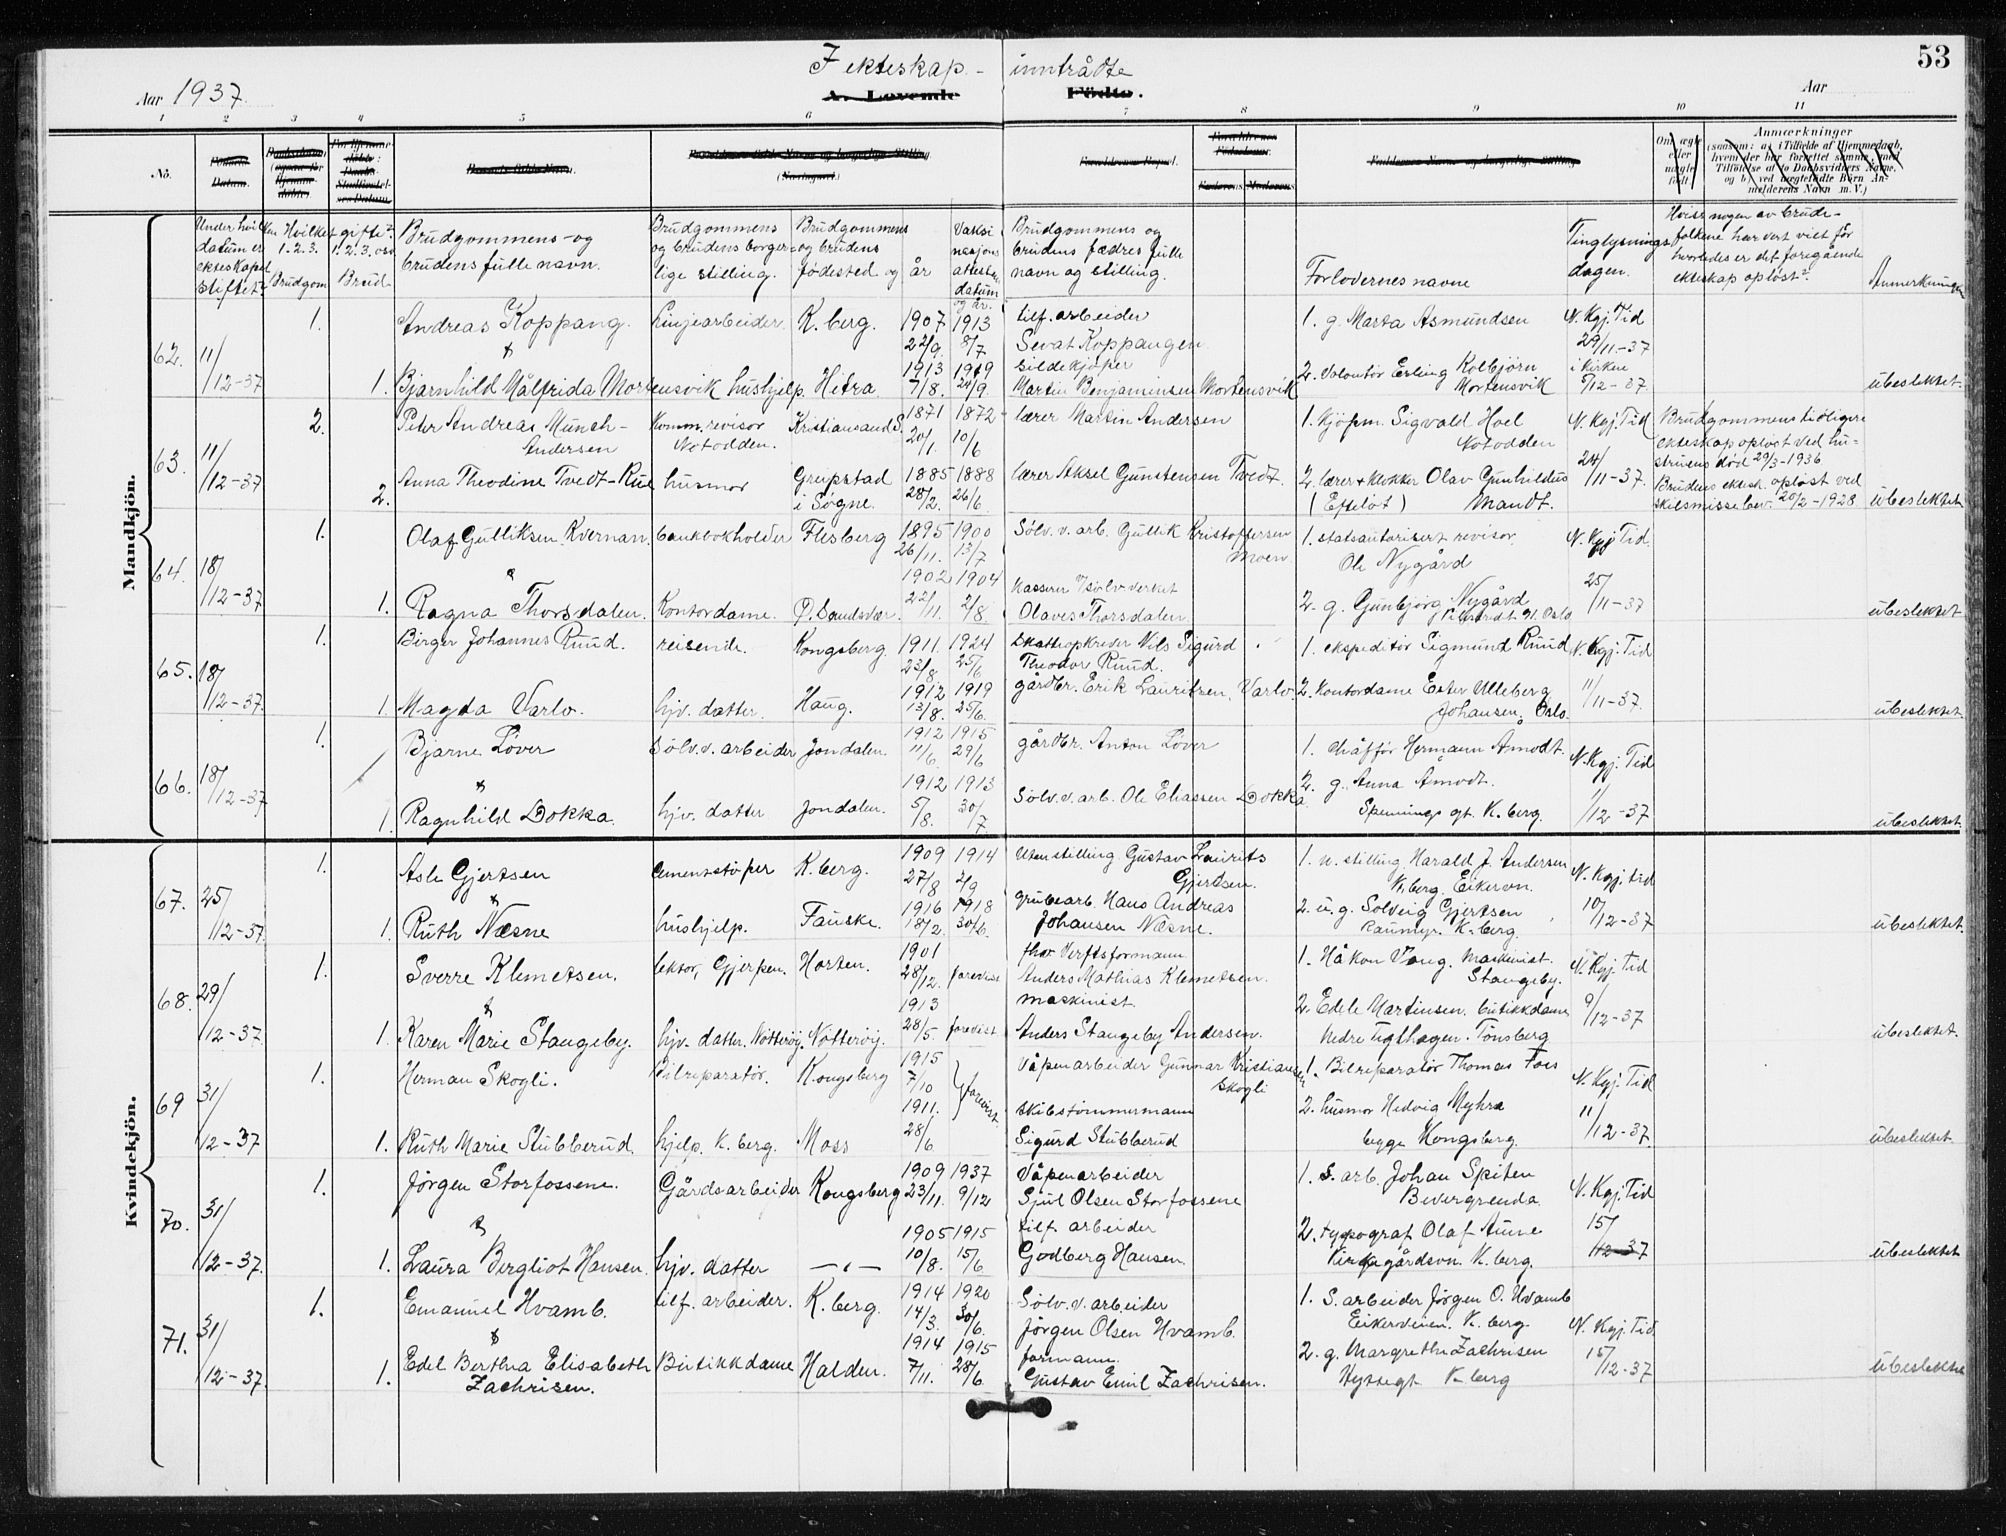 53
I ekteskap - inntrådte
Aar 1937.
A. Levende Födte.
Aar
1 2 3 4 5 6 7 8 9 10 11
No.
Anmærkninger
Under hvilken datum er ekteskapet stiftet?
Hvilket gifte? 1. 2. 3. Brudgom
1. 2. 3. osv Brud
Brudgommens og brudens fulle navn.
Brudgommens og brudens borgerlige stilling.
Brudgommens og brudens fødested og år
Vaksinasjonsattestens datum og år.
Brudgommens og brudens fædres fulle navn og stilling.
Forlovernes navne
Tinglysningsdagen.
Hviss nogen av brudefolkene har vert viet før hvorledes er det foregående ekteskap opløst?
Anmerkninger
Mandkjön.
62. 11/12-37
1. Andreas Koppang. Linjearbeider. K.berg. 1907 22/9. 1913 8/7 tilf. arbeider Sevat Koppangen 1. g. Marta Asmundsen N. Kgj. Tid 29/11-37 i kirken 5/12-37.
1. Bjarnhild Målfrida Mortensvik hushjelp. Hitra 1913 7/8. 1919 24/9. Sildekjøper Martin Benjaminsen Mortensvik 2. Volontør Erling Kolbjørn Mortensvik ubeslektet.
63. 11/12-37
2. Peter Andreas Münch-Andersen Komm. revisor Notodden. Kristiansand S. 1871 20/1. 1872 10/6 lærer Martin Andersen 1. Kjøpm. Sigvald Hoel Notodden N. Kgj. Tid 24/11-37. Brudgommens tidligere ekteskap opløst ved hustruens død 29/3-1936
2. Anna Theodine Tvedt-Rue husmor Grepstad i Søgne. 1885 28/2. 1888 26/6 lærer Aksel Gunstensen Tvedt. 2. lærer + klokker Olav Gunhildus Mandt. (Efteløt) Brudens ektesk. opløst ved skilsmissebev. 20/2-1928 ubeslektet
64. 18/12-37
1. Olaf Gulliksen Kvernan. bankbokholder Flesberg 1895 26/11. 1900 13/7 Sølv. v. arb. Gullik Kristoffersen Moen 1. statsautorisert revisor. Ole Nygård N. Kgj Tid. 25/11-37
1. Ragna Thorsdalen. Kontordame. Ø. Sandsvær. 1902 22/11. 1904 2/8. Kasserer v/sølvverket Olaves Thorsdalen. 2. g. Gunbjørg Nygård ubeslektet
65. 18/12-37.
1. Birger Johannes Ruud. reisende. Kongsberg 1911. 23/8. 1924 25/6 Skatteopkrever Nils Sigurd Theodor Ruud. 1. ekspeditør Sigmund Ruud N. Kgj. Tid 11/11-37.
1. Magda Varlo. hjv. datter. Haug. 1912 13/8. 1919 25/6. gårdbr. Erik Lauritzen Varlo. 2. Kontordame Ester Ulleberg Johansen, Oslo. ubeslektet.
66. 18/12-37
1. Bjarne Løver Sølv. v. arbeider Jondalen. 1912 11/6. 1915 29/6 gårdbr. Anton Løver 1. chåffør Hermann Åmodt. N. Kgj. Tid 1/12-37
1. Ragnhild Dokka. hjv. datter Jondalen. 1912 5/8. 1913 30/7 Sølv. v. arb. Ole Eliassen Dokka 2. g. Anna Åmodt. Spennings gt. K. berg. ubeslektet.
Kvindekjön.
67. 25/12-37
1. Asle Gjertsen cementstøper K.berg. 1909 27/8 1914 2/9 Uten stilling Gustav Laurits Gjertsen. 1. u. stilling Harald J. Andersen K.berg. Eikervn. N. Kgj. tid 10/12-37
1. Ruth Næsne hushjelp. Fauske. 1916 18/2. 1918 30/6. grubearb. Hans Andreas Johansen Næsne. 2. u. g. Solveig Gjertsen Raumyr. K. berg ubeslektet.
68. 29/12-37
1. Sverre Klemetsen. lektor, Gjerpen. Horten. 1901 28/12. forevist Verftsformann Anders Mathias Klemetsen. 1. Håkon Vang. maskinist. Stangeby. N. Kgj. Tid 9/12-37
1. Karen Marie Stangeby. hjv. datter, Nøtterøy. Nøtterøy. 1913 28/5. forevist maskinist Anders Stangeby Andersen. 2. Edele Martinsen. butikkdame Nedre Tugthagen. Tønsberg ubeslektet.
69 31/12-37
1. Herman Skogli. Bilreparatør. Kongsberg 1915 7/10 forevist. Våpenarbeider Gunnar Kristiansen Skogli 1. Bilreparatør Thomas Foss N. Kgj. Tid 11/12-37.
1. Ruth Marie Stubberud. hjelp. K. berg. Moss 1911. 28/6 Skibstømmermann Sigurd Stubberud 2. husmor Hedvig Myhra begge Kongsberg. ubeslektet.
70. 31/12-37.
1. Jørgen Storfossene. Gårdsarbeider Kongsberg 1909 23/11. 1937 9/12 Våpenarbeider Sjul Olsen Storfossene 1. S. arb. Johan Spiten Bevergrenda N. Kgj. Tid 15/12-37
1. Laura Bergliot Hansen. hjv. datter —„— 1905 10/8. 1915 15/6 tilf. arbeider Godberg Hansen. 2. typograf Olaf Aune Kirkegårdsvn. K. berg. ubeslektet
71. 31/12-37.
1. Emanuel Hvamb. tilf. arbeider. K. berg. 1914 14/3. 1920 30/6. Sølv. v. arbeider Jørgen Olsen Hvamb. 1. S. arbeider Jørgen O. Hvamb Eikerveien. K. berg. N. Kgj. Tid. 15/12-37
1. Edel Bertha Elisabeth Zachrisen. Butikkdame Halden. 1914 7/11. 1915 28/6 formann. Gustav Emil Zachrisen. 2. g. Margrethe Zachrisen Hyttegt K-berg ubeslektet